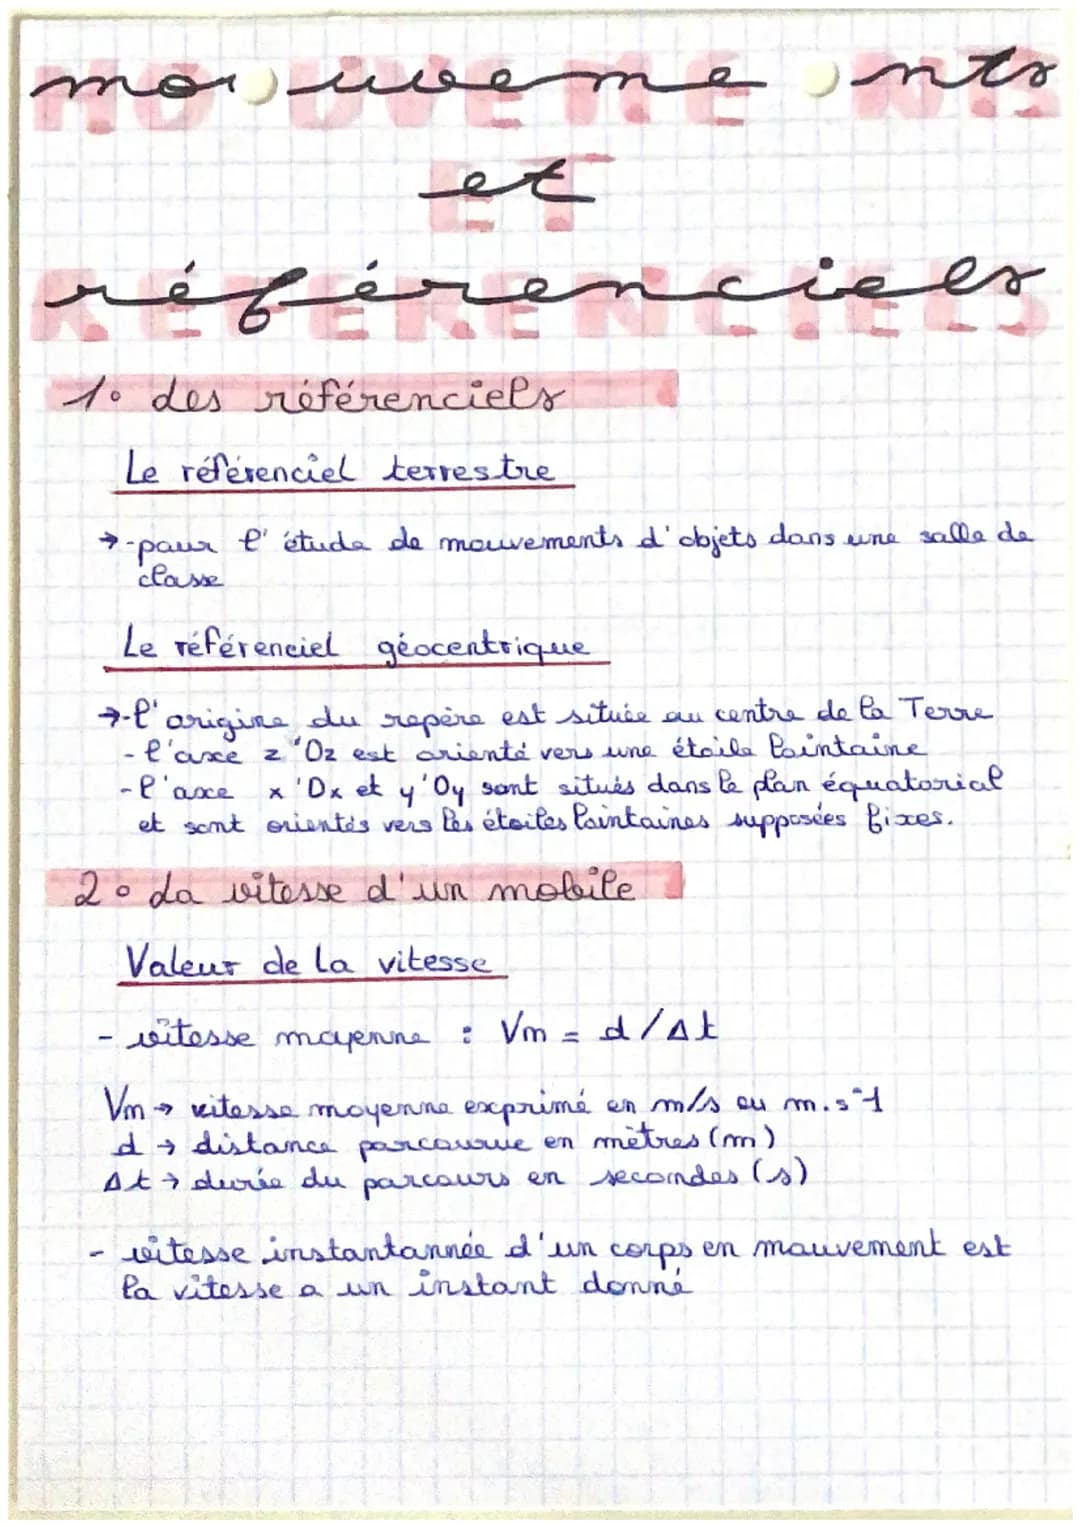 mouvements
MOUVEMENTS
et
ET
référenciels
RÉFÉRENCIELS
1. des référenciels
Le référenciel terrestre
→-pour l'étude de mouvements d'objets dans une salle de
classe
Le référenciel géocentrique
→-l'origine du repère est située au centre de la Terre
- l'axe z'Oz est orienté vers une étoile lointaine
- l'axe x'Ox et y'Oy sont situés dans le plan équatorial
et sont orientés vers les étoiles lointaines supposées fixes.
2. La vitesse d'un mobile
Valeur de la vitesse
- vitesse moyenne : Vm = d/Δt
Vm → vitesse moyenne exprimé en m/s ou m.s-1
d → distance parcourue en mètres (m)
Δt → durée du parcours en secondes (s)
- vitesse instantannée d'un corps en mouvement est
la vitesse a un instant donné